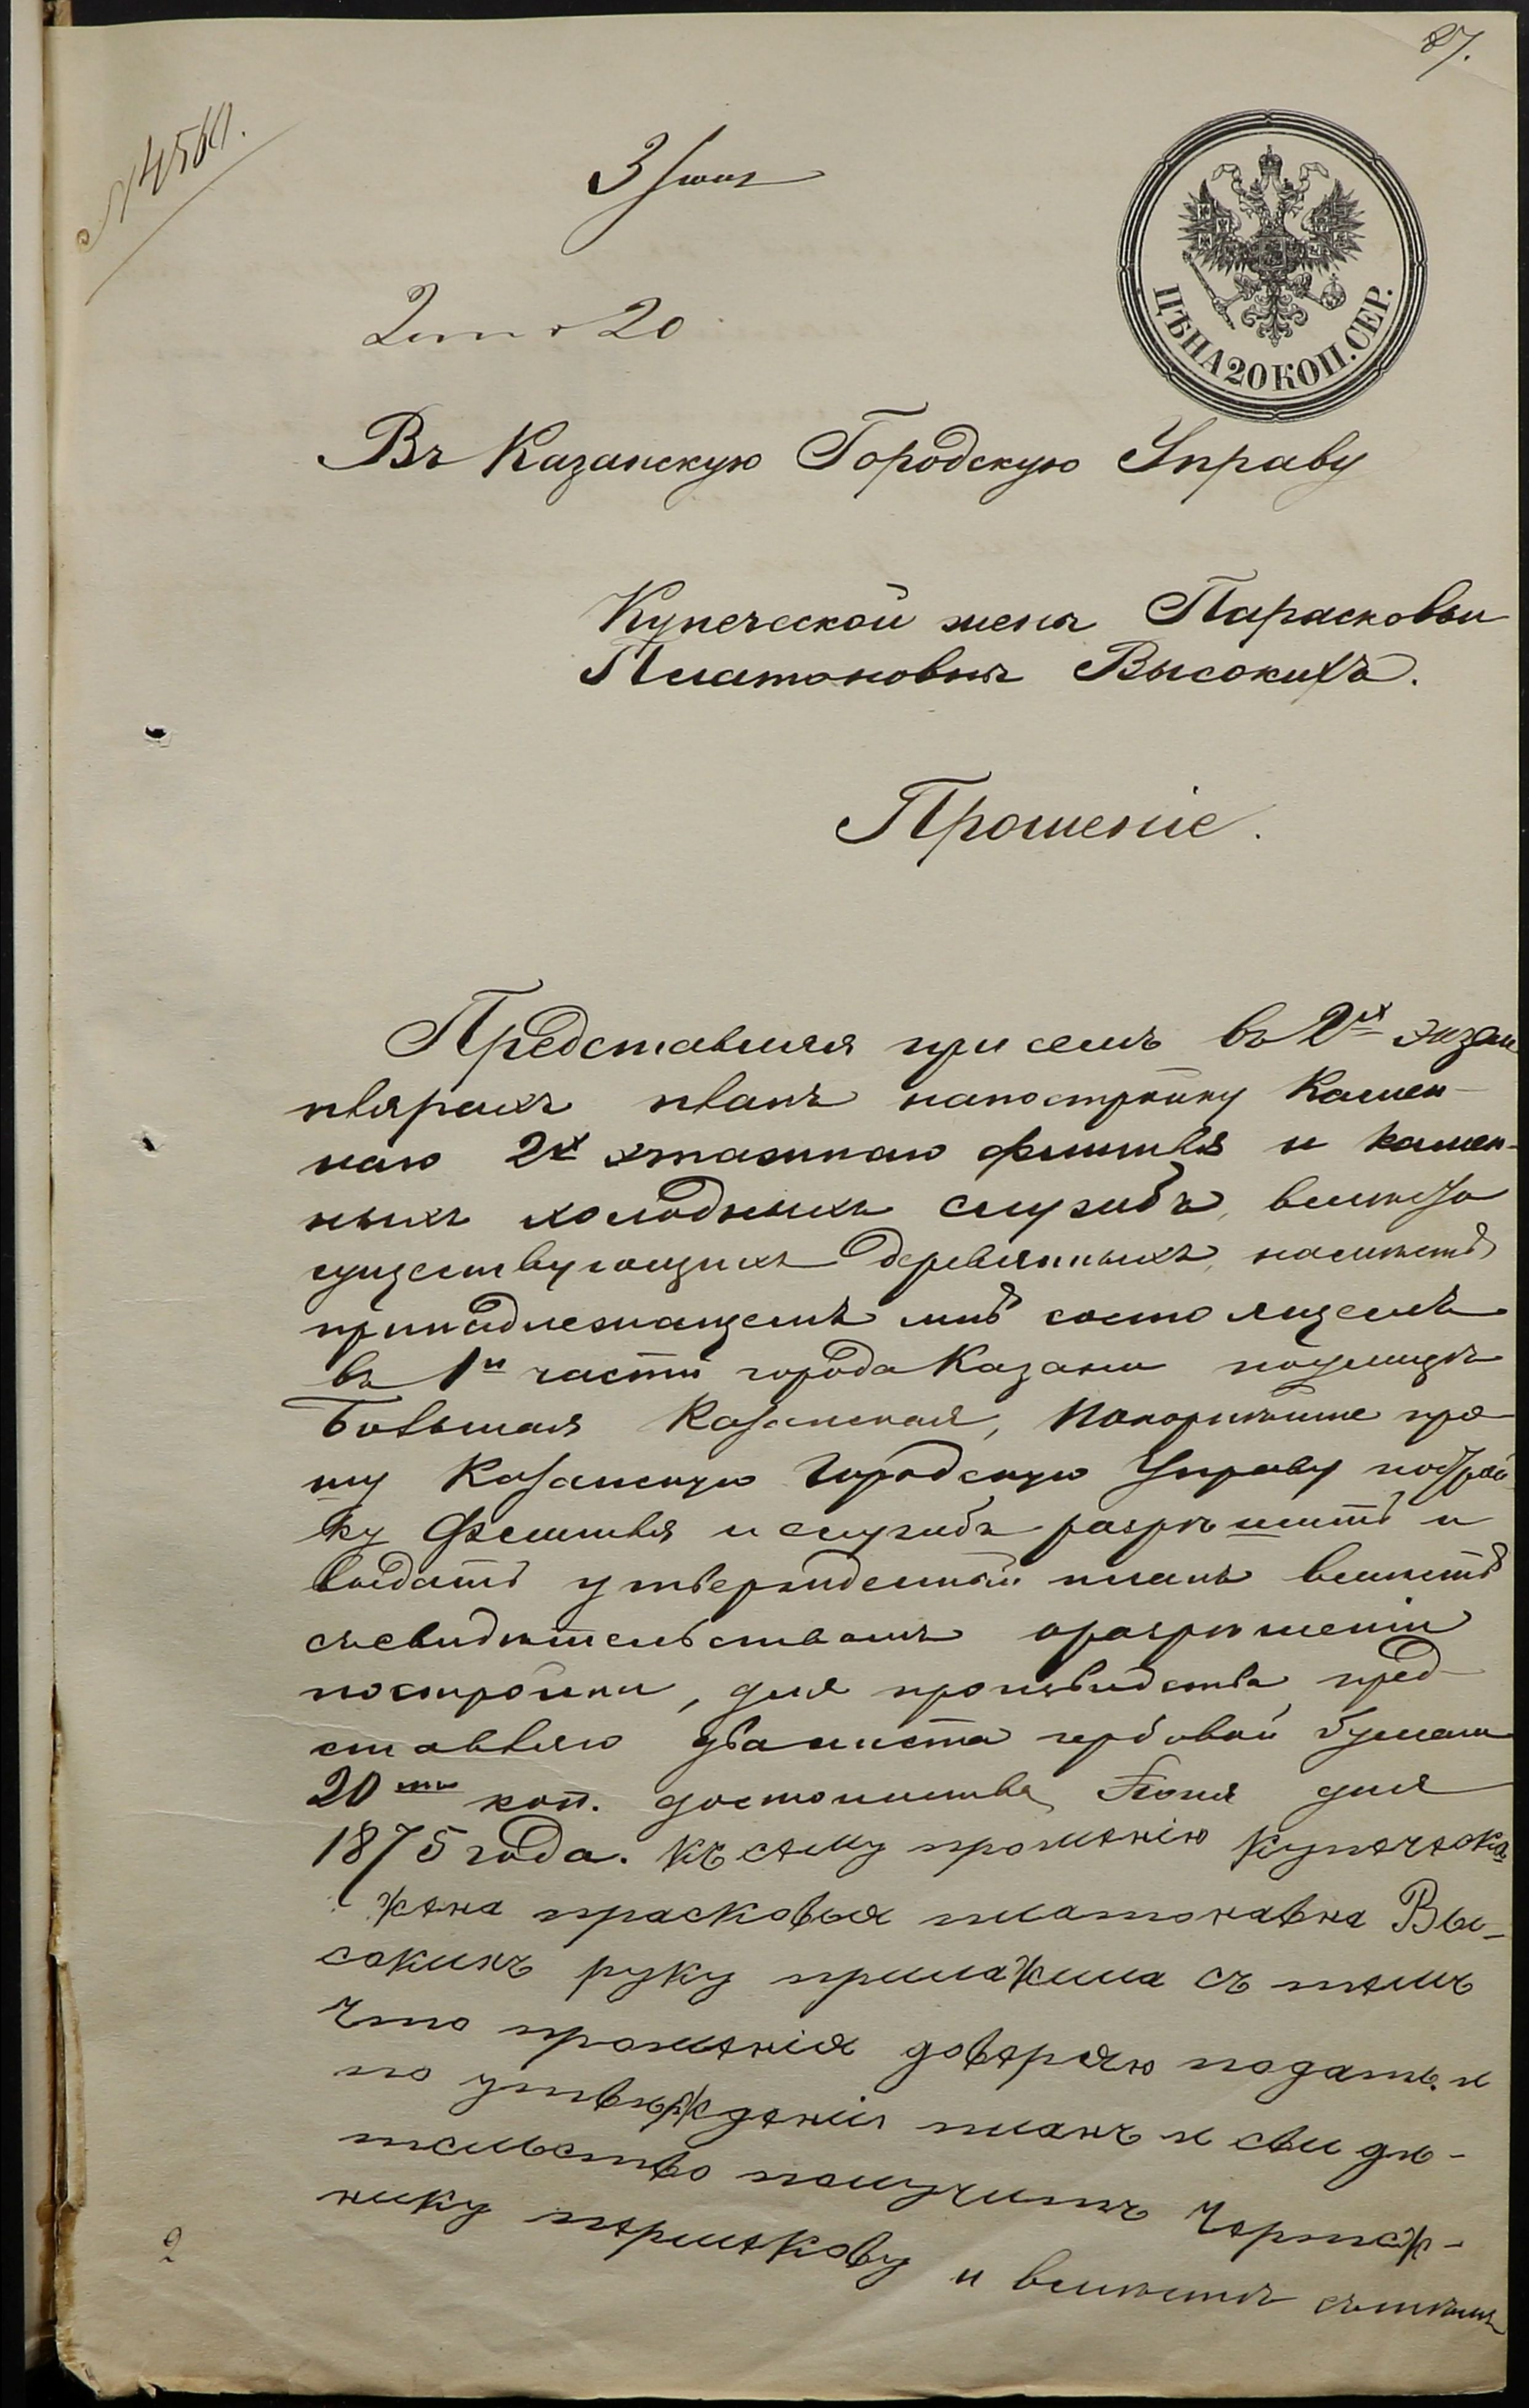 27.
№ 4560.
3 Іюня
2 от 20
ЦѢНА 20 КОП. СЕР.
Въ Казанскую Городскую Управу
Купеческой жены Парасковьи
Платоновны Высокихъ.
Прошеніе.
Представляя при семъ въ 2хъ экзем
плярахъ планъ напостройку Камен-
наго 2х этажнаго флигеля и камен-
ныхъ холодныхъ службъ, вместо
существующихъ деревянныхъ, наместѣ
принадлежащемъ мнѣ состоящемъ
въ 1й части города Казани поулицѣ
Большая Казанская, Покорнѣйше про-
шу Казанскую Городскую Управу построй
ку Флигеля и службъ разрѣшить и
выдать утвержденный планъ вместѣ
съсвидѣтельствомъ оразрѣшеніи
постройки, для производства пред-
ставляю два листа гербовой бумаги
20ти коп. достоинства Іюня дня
1875 года. Къ сему прошенію купеческа
жена прасковья платонавна Вы-
сокихъ руку прилажила съ темъ
что прошенія доверяю подать и
по утвержденія планъ и свиде-
тельство получить чертеж-
нику термякову и вместѣ
2